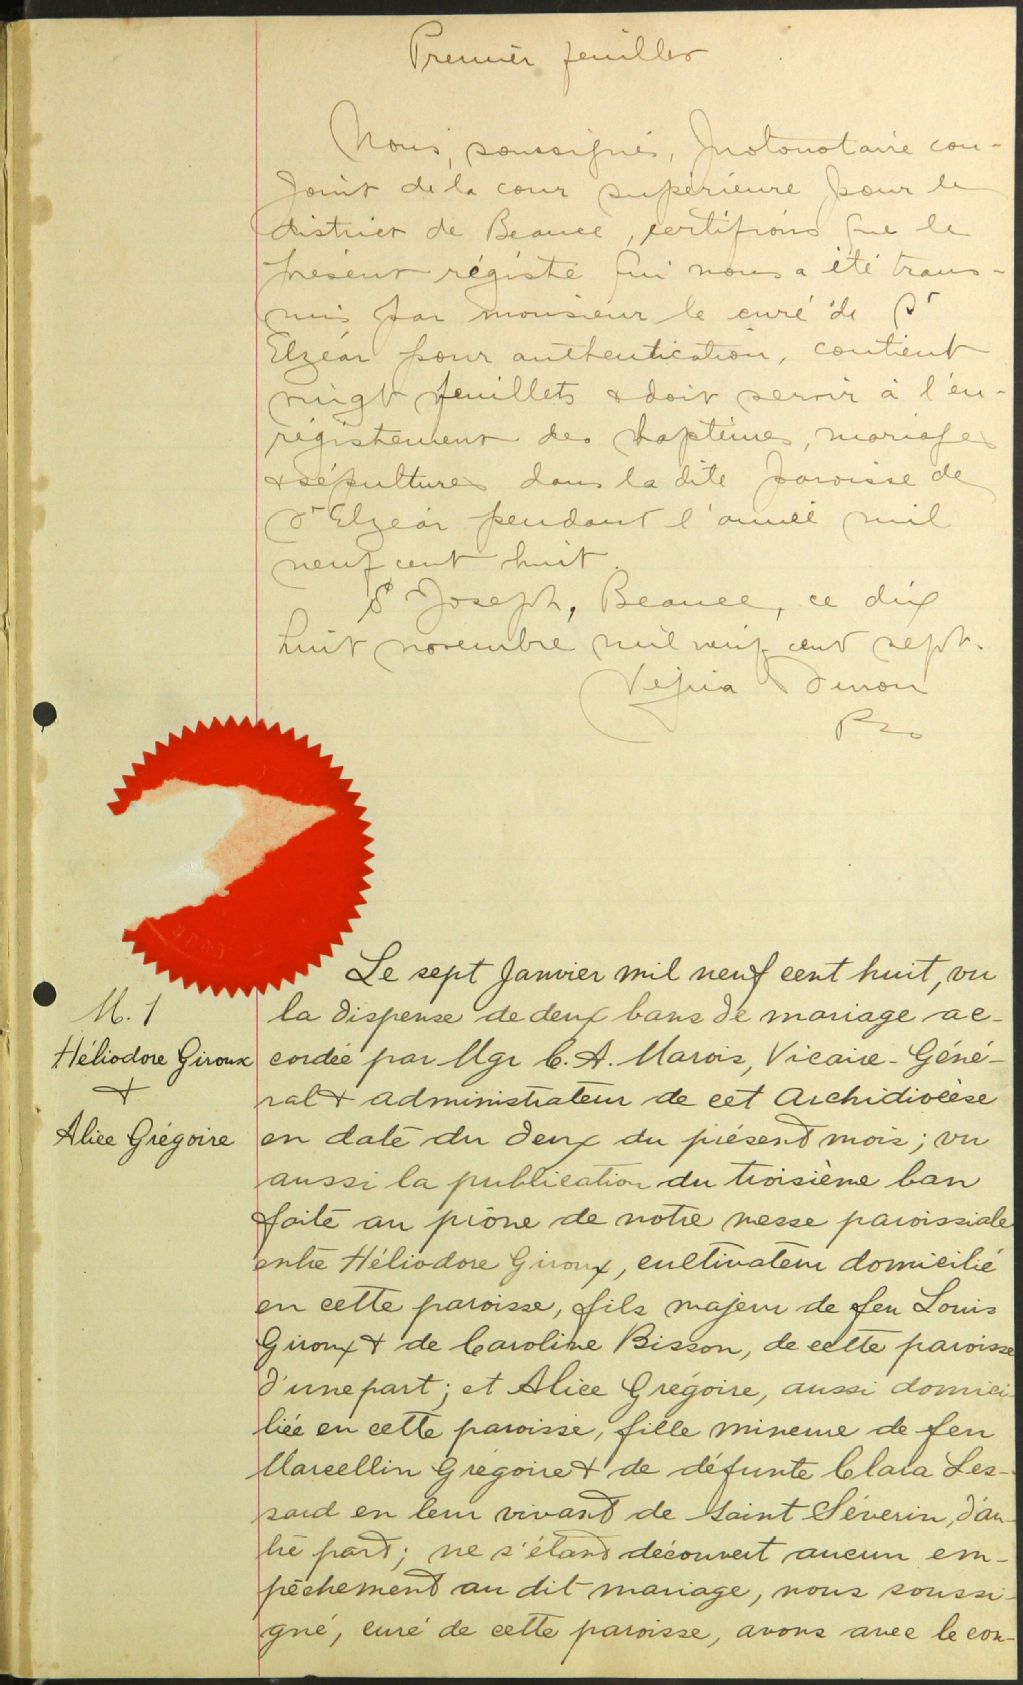 Premier feuillet
Nous, soussignés, Protonotaire con-
joint de la cour supérieure pour le
district de Beauce, certifions que le
présent régistre qui nous a été trans-
mis par monsieur le curé de St
Elzéar pour authentication, contient
vingt feuillets & doit servir à l'en-
régistrement des baptêmes, mariages
& sépultures dans la dite paroisse de
St Elzéar pendant l'année mil
neuf cent huit.
St Joseph, Beauce, ce dix
huit novembre mil neuf cent sept.
Vézina
Le sept Janvier mil neuf cent huit, vu
M. 1
la dispense de deux bans de mariage ac-
Héliodore Giroux
cordée par Mgr C. A. Marois, Vicaire-Géné-
+
ral & administrateur de cet Archidiocèse
Alice Grégoire
en date du deux du présent mois; vu
aussi la publication du troisième ban
faite au prône de notre messe paroissiale
entre Héliodore Giroux, cultivateur domicilié
en cette paroisse, fils majeur de feu Louis
Giroux & de Caroline Bisson, de cette paroisse
d'une part; et Alice Grégoire, aussi domici-
liée en cette paroisse, fille mineure de feu
Marcellin Grégoire & de défunte Clara Les-
sard en leur vivant de Saint Séverin, d'au-
tre part; ne s'étant découvert aucun em-
pêchement au dit mariage, nous soussi-
gné, curé de cette paroisse, avons avec le con-